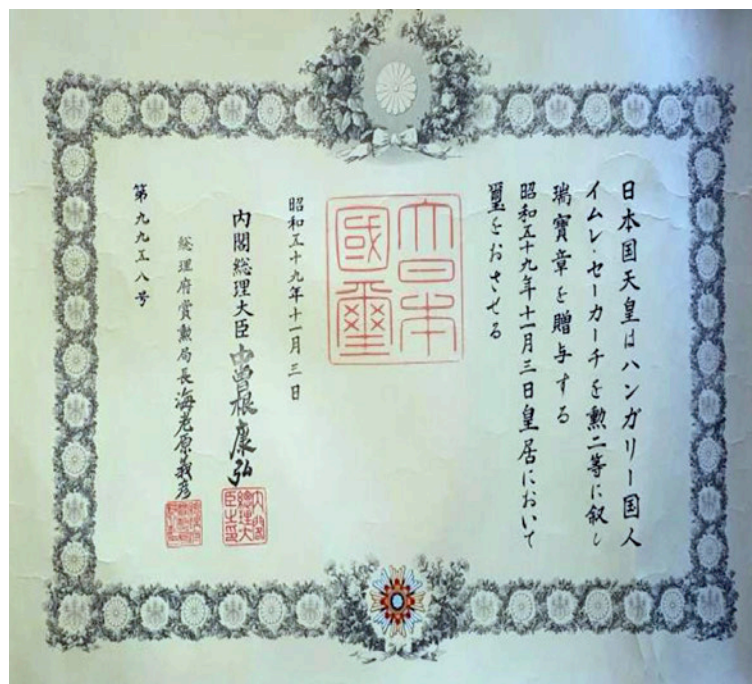 日本国天皇はハンガリー国人
イムレ・セーカーチを勲二等に叙し
瑞寶章を贈与する
昭和五十九年十一月三日皇居において
璽をおさせる
大日本
國璽
昭和五十九年十一月三日
内閣総理大臣 中曽根康弘
内閣
総理大
臣之印
総理府賞勲局長 海老原義彦
第九九五八号